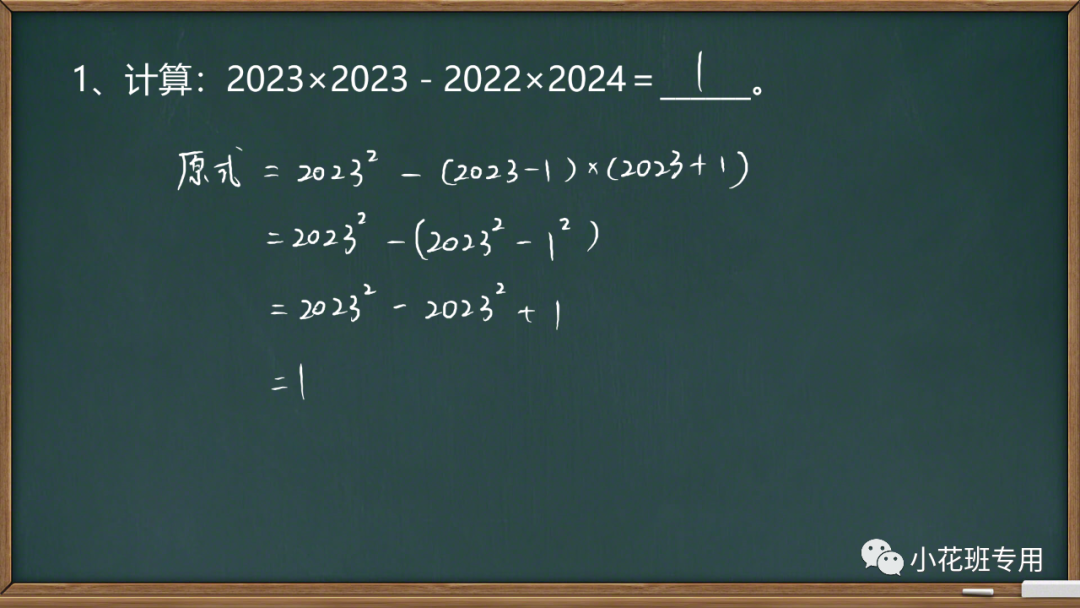 1、计算：2023×2023－2022×2024＝ 1 。
原式 = 2023² - (2023-1)×(2023+1)
= 2023² - (2023² - 1²)
= 2023² - 2023² + 1
= 1
小花班专用